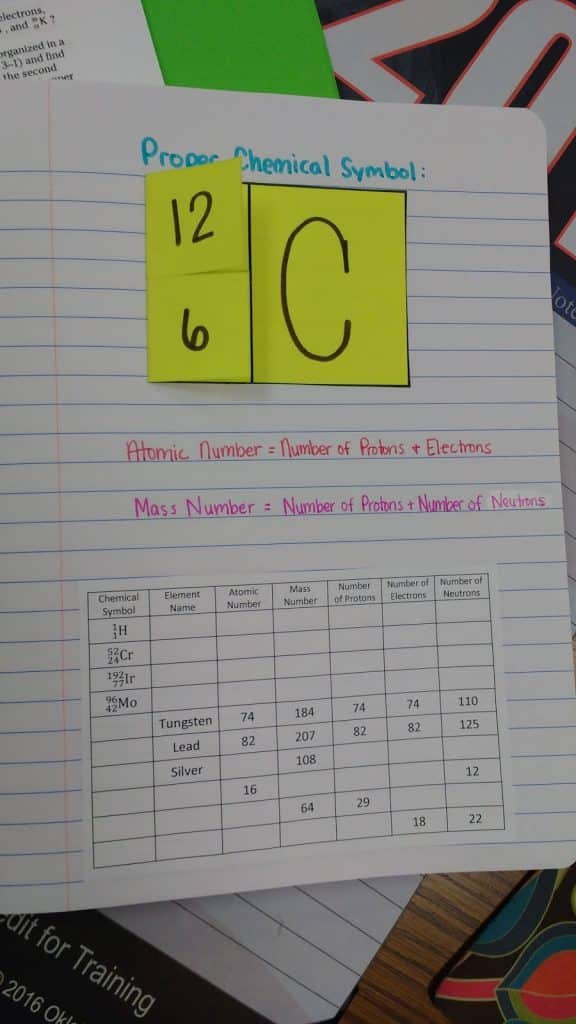 electrons,
, and K ?
organized in a
3–1) and find
the second
Proper Chemical Symbol:
12
6
C
Atomic Number = Number of Protons + Electrons
Mass Number = Number of Protons + Number of Neutrons
Chemical Symbol Element Name Atomic Number Mass Number Number of Protons Number of Electrons Number of Neutrons
¹₁H
⁵²₂₄Cr
¹⁹²₇₇Ir
⁹⁶₄₂Mo
Tungsten 74 184 74 74 110
Lead 82 207 82 82 125
Silver 108
16 12
64 29
18 22
dit for Training
2016